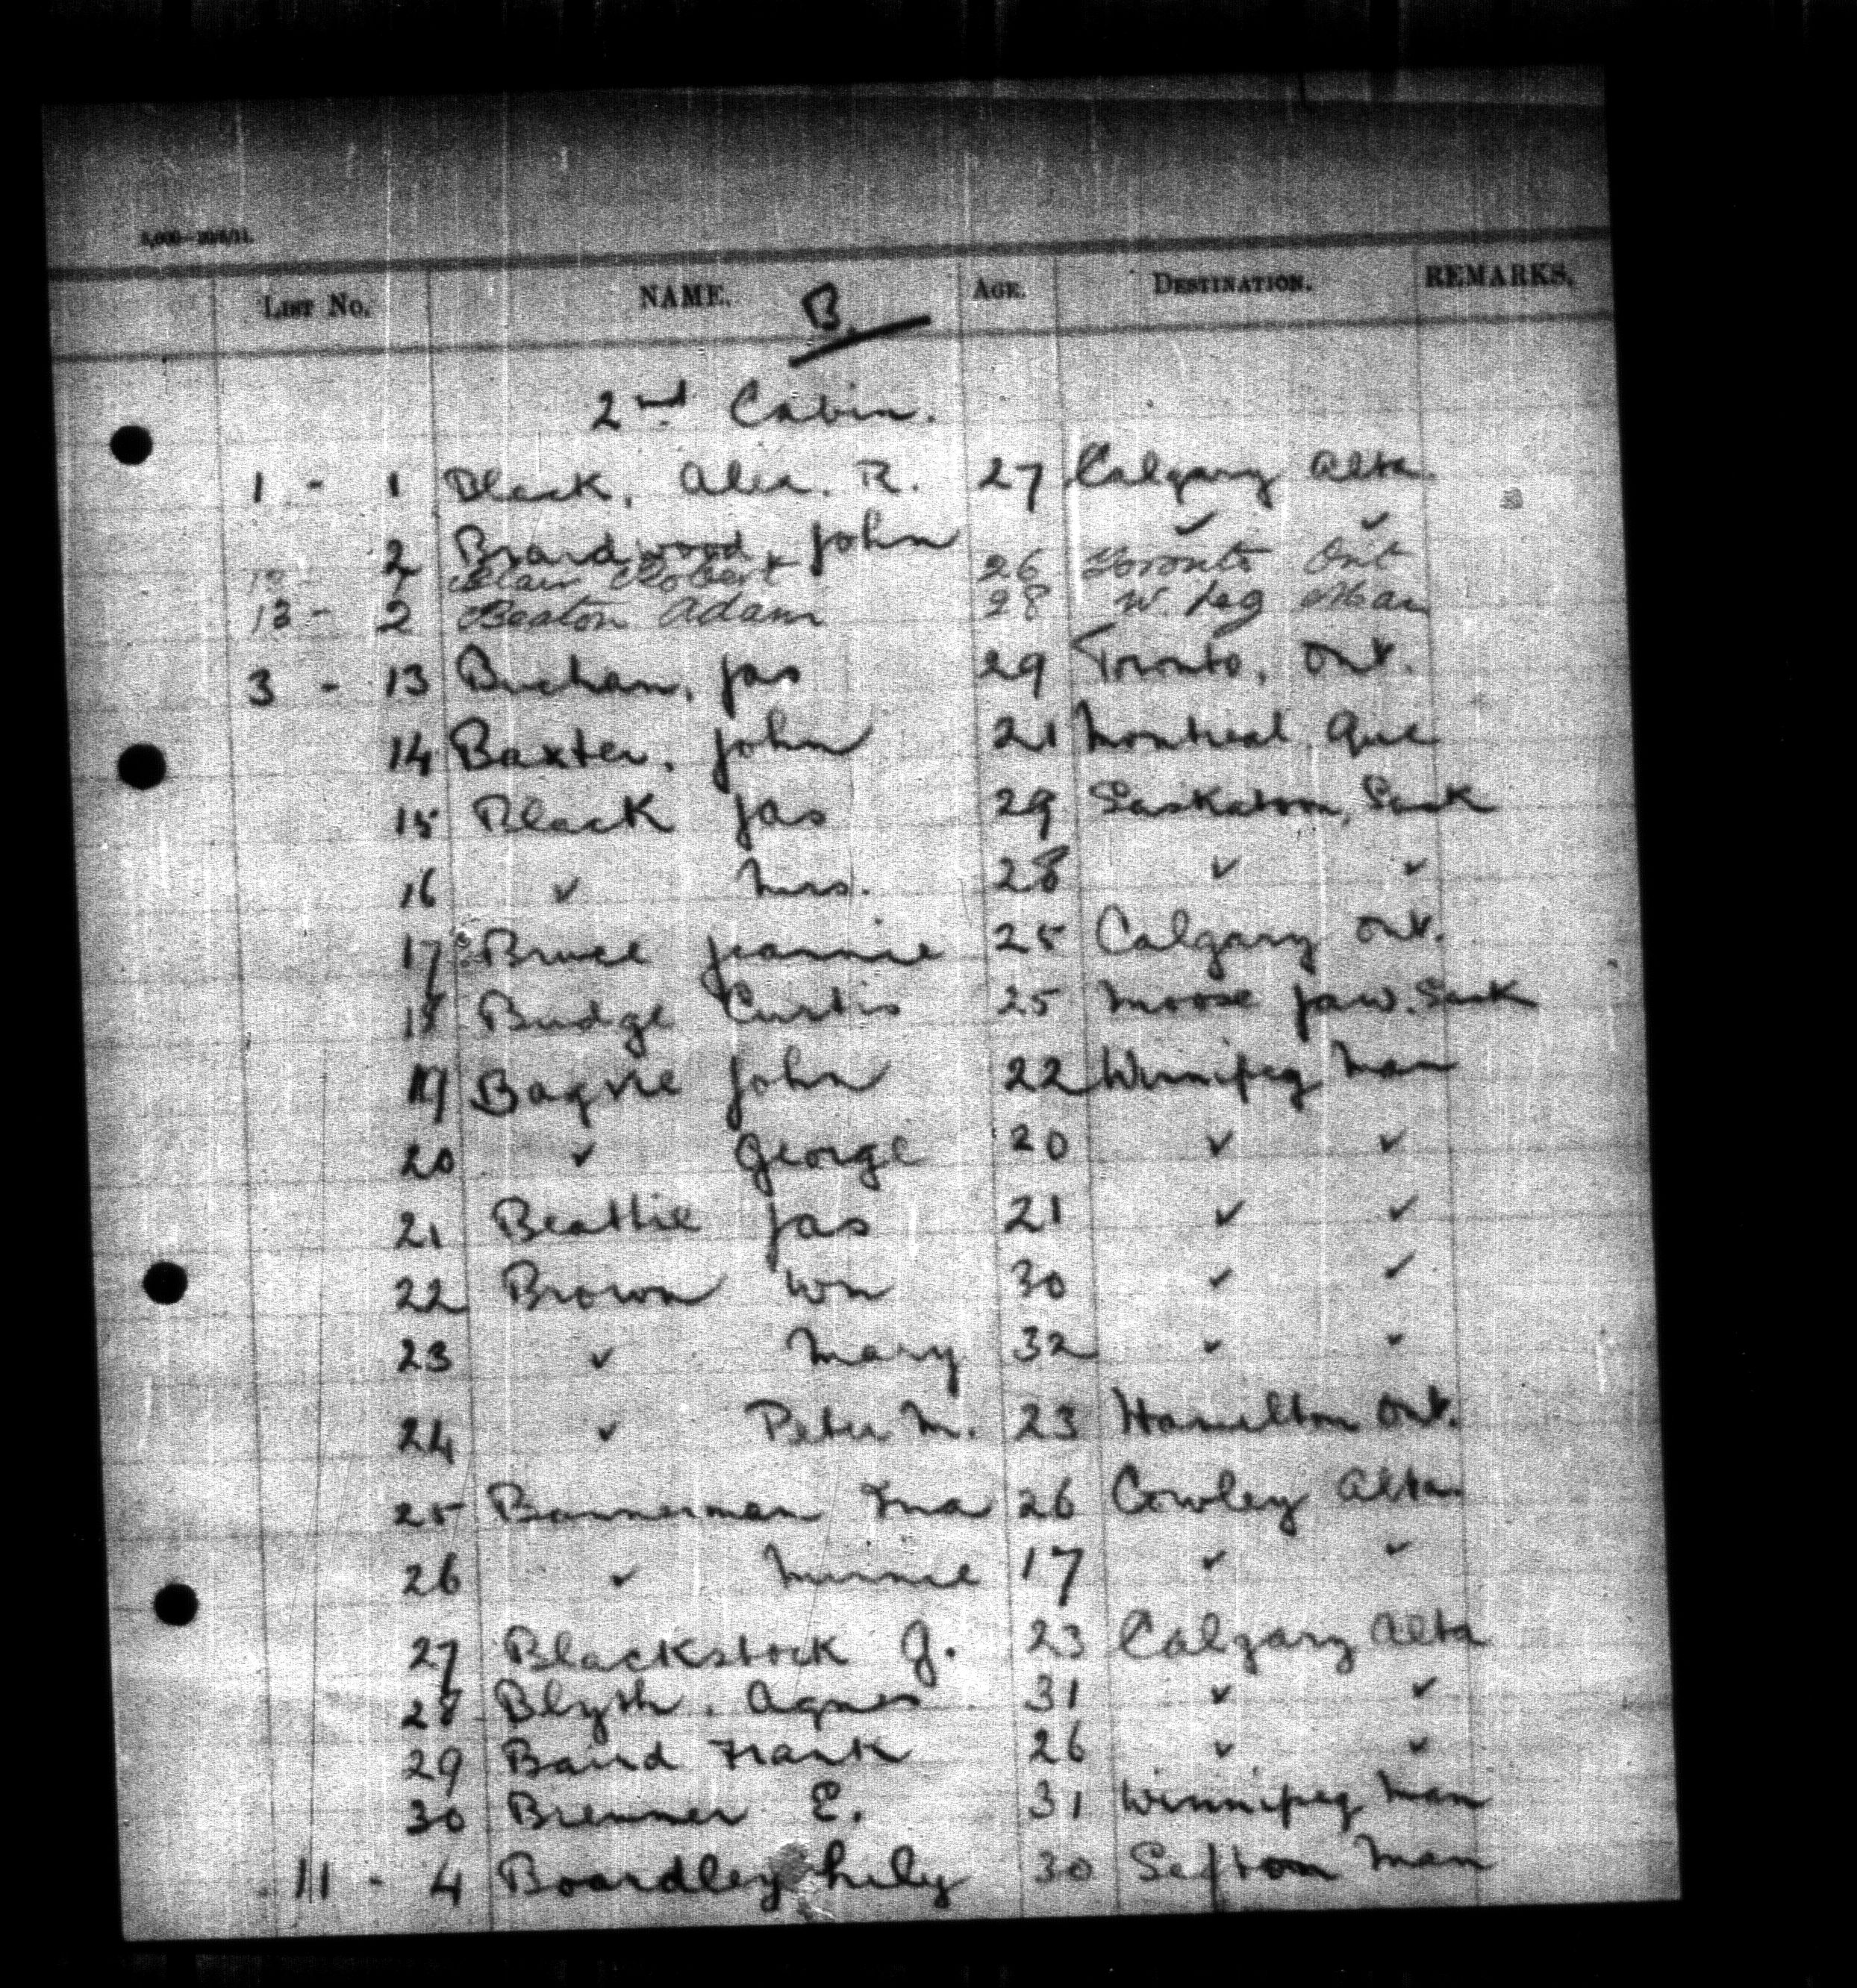 LIST No. NAME. B. AGE. DESTINATION. REMARKS.
2nd Cabin.
1 - 1 Black, Alex. R. 27 Calgary Alta.
2 Braidwood John ✓ ✓
1 Blair Robert 26 Toronto Ont
13 - 2 Beaton Adam 28 W. Peg Man
3 - 13 Buchan, Jas 29 Toronto, Ont.
14 Baxter, John 21 Montreal, Que
15 Black Jas 29 Saskatoon, Sask
16 ✓ Mrs. 28 ✓ ✓
17 Bruce Jeannie 25 Calgary Ont.
18 Budge Curtis 25 Moose Jaw. Sask
19 John 22 Winnipeg Man
20 ✓ George 20 ✓ ✓
21 Beattie Jas 21 ✓ ✓
22 Brown Wm 30 ✓ ✓
23 ✓ Mary 32 ✓ ✓
24 ✓ Peter M. 23 Hamilton Ont.
25 Bannerman Ina 26 Cowley Alta
26 ✓ Minnie 17 ✓ ✓
27 Blackstock J. 23 Calgary Alta
28 Blyth. Agnes 31 ✓ ✓
29 Baird Frank 26 ✓ ✓
30 Bremner E. 31 Winnipeg Man
11 - 4 Boardley Lily 30 Sefton Man